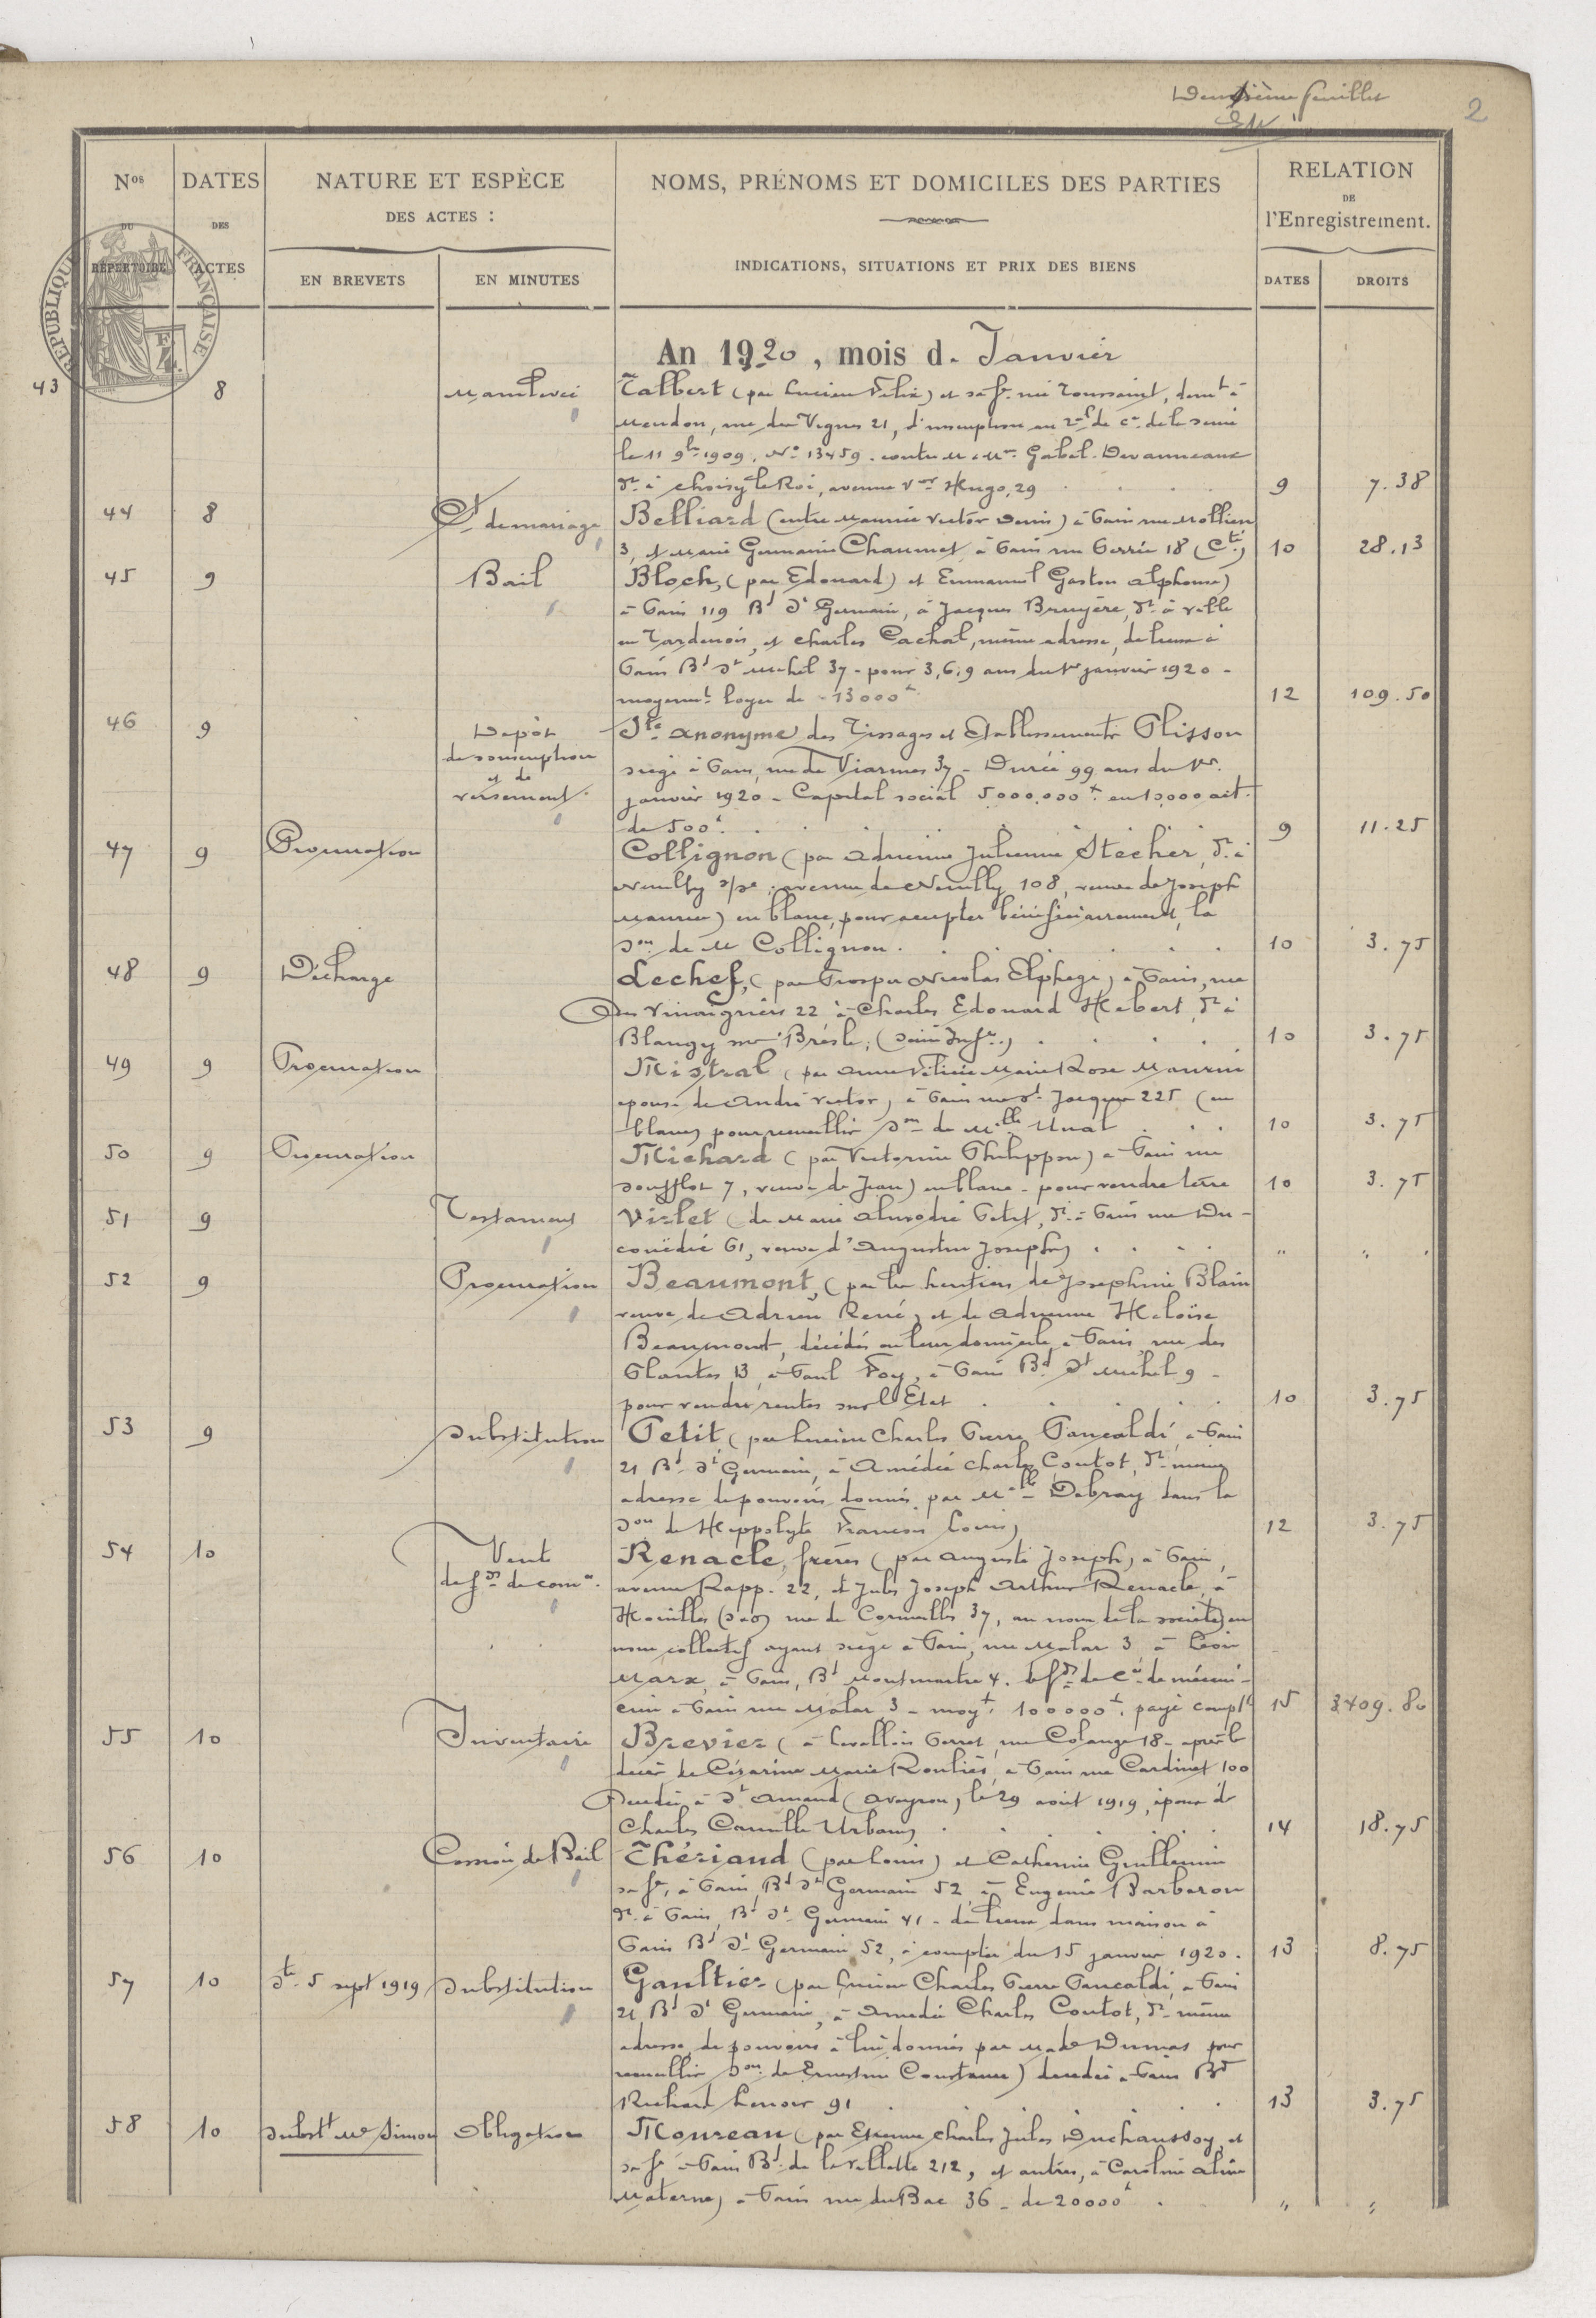 Deuxième feuillet
2
Nos DU RÉPERTOIRE
DATES DES ACTES
NATURE ET ESPÈCE
DES ACTES :
EN BREVETS
EN MINUTES
NOMS, PRÉNOMS ET DOMICILES DES PARTIES
INDICATIONS, SITUATIONS ET PRIX DES BIENS
RELATION
DE
l'Enregistrement.
DATES
DROITS
RÉPUBLIQUE FRANÇAISE
An 1920, mois d. Janvier
43 8 Mainlevée Talbert (par Lucien Felix) et sa fe née Toussaint, demt à
Meudon, rue des Vignes 21, d'inscription au 2e de de la Seine
le 11 9bre 1909, No 13459. contre M. Mme Gabel-Devanneaux
dt à Choisy le Roi, avenue Vor Hugo, 29 9 7.38
44 8 Ct de mariage Belliard (entre Maurice Victor Denis) à Paris rue Mollien
3, et Marie Germaine Chaumet, à Paris rue Perrée 18 (Cté) 10 28.13
45 9 Bail Bloch, (par Edouard) et Emmanuel Gaston Alphonse)
à Paris 119 Bd St Germain, à Jacques Bruyère, dt à Ville
en Tardenois, et Charles Cachal, même adresse, de lieux à
Paris Bd St Michel 37 - pour 3,6,9 ans du 1er janvier 1920 -
moyennt loyer de - 13000f 12 109.50
46 9 Dépôt de souscription et de versement. Sté Anonyme des Tissages et Etablissements Plisson
siège à Paris, rue de Viarmes 37 - Durée 99 ans du 1er
janvier 1920 - Capital social 5.000.000f en 10,000 act.
de 500f. 9 11.25
47 9 Procuration Collignon (par Adrienne Julienne Stecher, dt à
Neuilly s/Se, avenue de Neuilly 108, veuve de Joseph
Maurice) en blanc, pour accepter bénéficiairement, la
son de M Collignon. 10 3.75
48 9 Décharge Lechef, (par Prosper Nicolas Elphege) à Paris, rue
des Vinaigriers 22 à Charles Edouard Hebert, dt à
Blangy sur Bresle, (Seine Infre.) 10 3.75
49 9 Procuration Mistral (par Anne Félicie Marie Rose Maurin
épouse de André Victor) à Paris rue St Jacques 225 (en
blanc) pour recueillir son de Melle Unal 10 3.75
50 9 Procuration Michard (par Victorine Philippon) à Paris rue
Soufflot 7, veuve de Jean) en blanc - pour vendre terre 10 3.75
51 9 Testament Virlet (de Marie Petit, dt à Paris rue Du-
couëdic 61, veuve d'Augustin Joseph) " "
52 9 Procuration Beaumont, (par les héritiers de Josephine Blain
veuve de Adrien René) et de Adrienne Héloïse
Beaumont, décédés en leur domicile à Paris, rue des
Plantes 13, à Paul Foy, à Paris Bd St Michel 9 -
pour vendre rentes sur l'Etat 10 3.75
53 9 Substitution Petit (par Lucien Charles Pierre Pancaldi, à Paris
21 Bd St Germain, à Amédée Charles Coutot, dt même
adresse de pouvoirs donnés par Melle Debray dans la
son de Hippolyte François Louis) 12 3.75
54 10 Vente de fds de come. Renacle, frères (par Auguste Joseph) à Paris,
avenue Rapp. 22, et Jules Joseph Arthur Renacle, à
Houilles (S&O) rue de Cormeilles 37, au nom de la société en
nom collectif ayant siège à Paris, rue Malar 3 à Léon
Marx, à Paris, Bd Montmartre 4. de fds de Ce de mécani-
cien à Paris rue Malar 3 - moyt. 100000f. payé compt 15 3409.80
55 10 Inventaire Brevier (à Levallois Perret, rue Colange 18 - après le
décès de Césarine Marie Rouliès, à Paris rue Cardinet 100
décédée à St Amand (Aveyron) le 29 août 1919, épouse de
Charles Camille Urbain) 14 18.75
56 10 Cession de Bail Thériaud (par Louis) et Catherine Guillemin
sa fe, à Paris, Bd St Germain 52, à Eugenie Barbaron
dt à Paris, Bd St Germain 41 - de lieux dans maison à
Paris Bd St Germain 52, à compter du 15 janvier 1920. 13 8.75
57 10 dt. 5 sept 1919 Substitution Gaultier (par Lucien Charles Pierre Pancaldi, à Paris
21, Bd St Germain, à Amédée Charles Coutot, dt même
adresse, de pouvoirs à lui donnés par Made Dumas pour
recueillir son de Ernestine Constance) décédée à Paris Bd
Richard Lenoir 91 13 3.75
58 10 Subst Me Simon Obligation Moureau (par Etienne Charles Jules Duchaussoy, et
sa fe à Paris Bd de la Villette 212, et autres, à Caroline Aline
Materne) à Paris rue du Bac 36 - de 20000f. " "